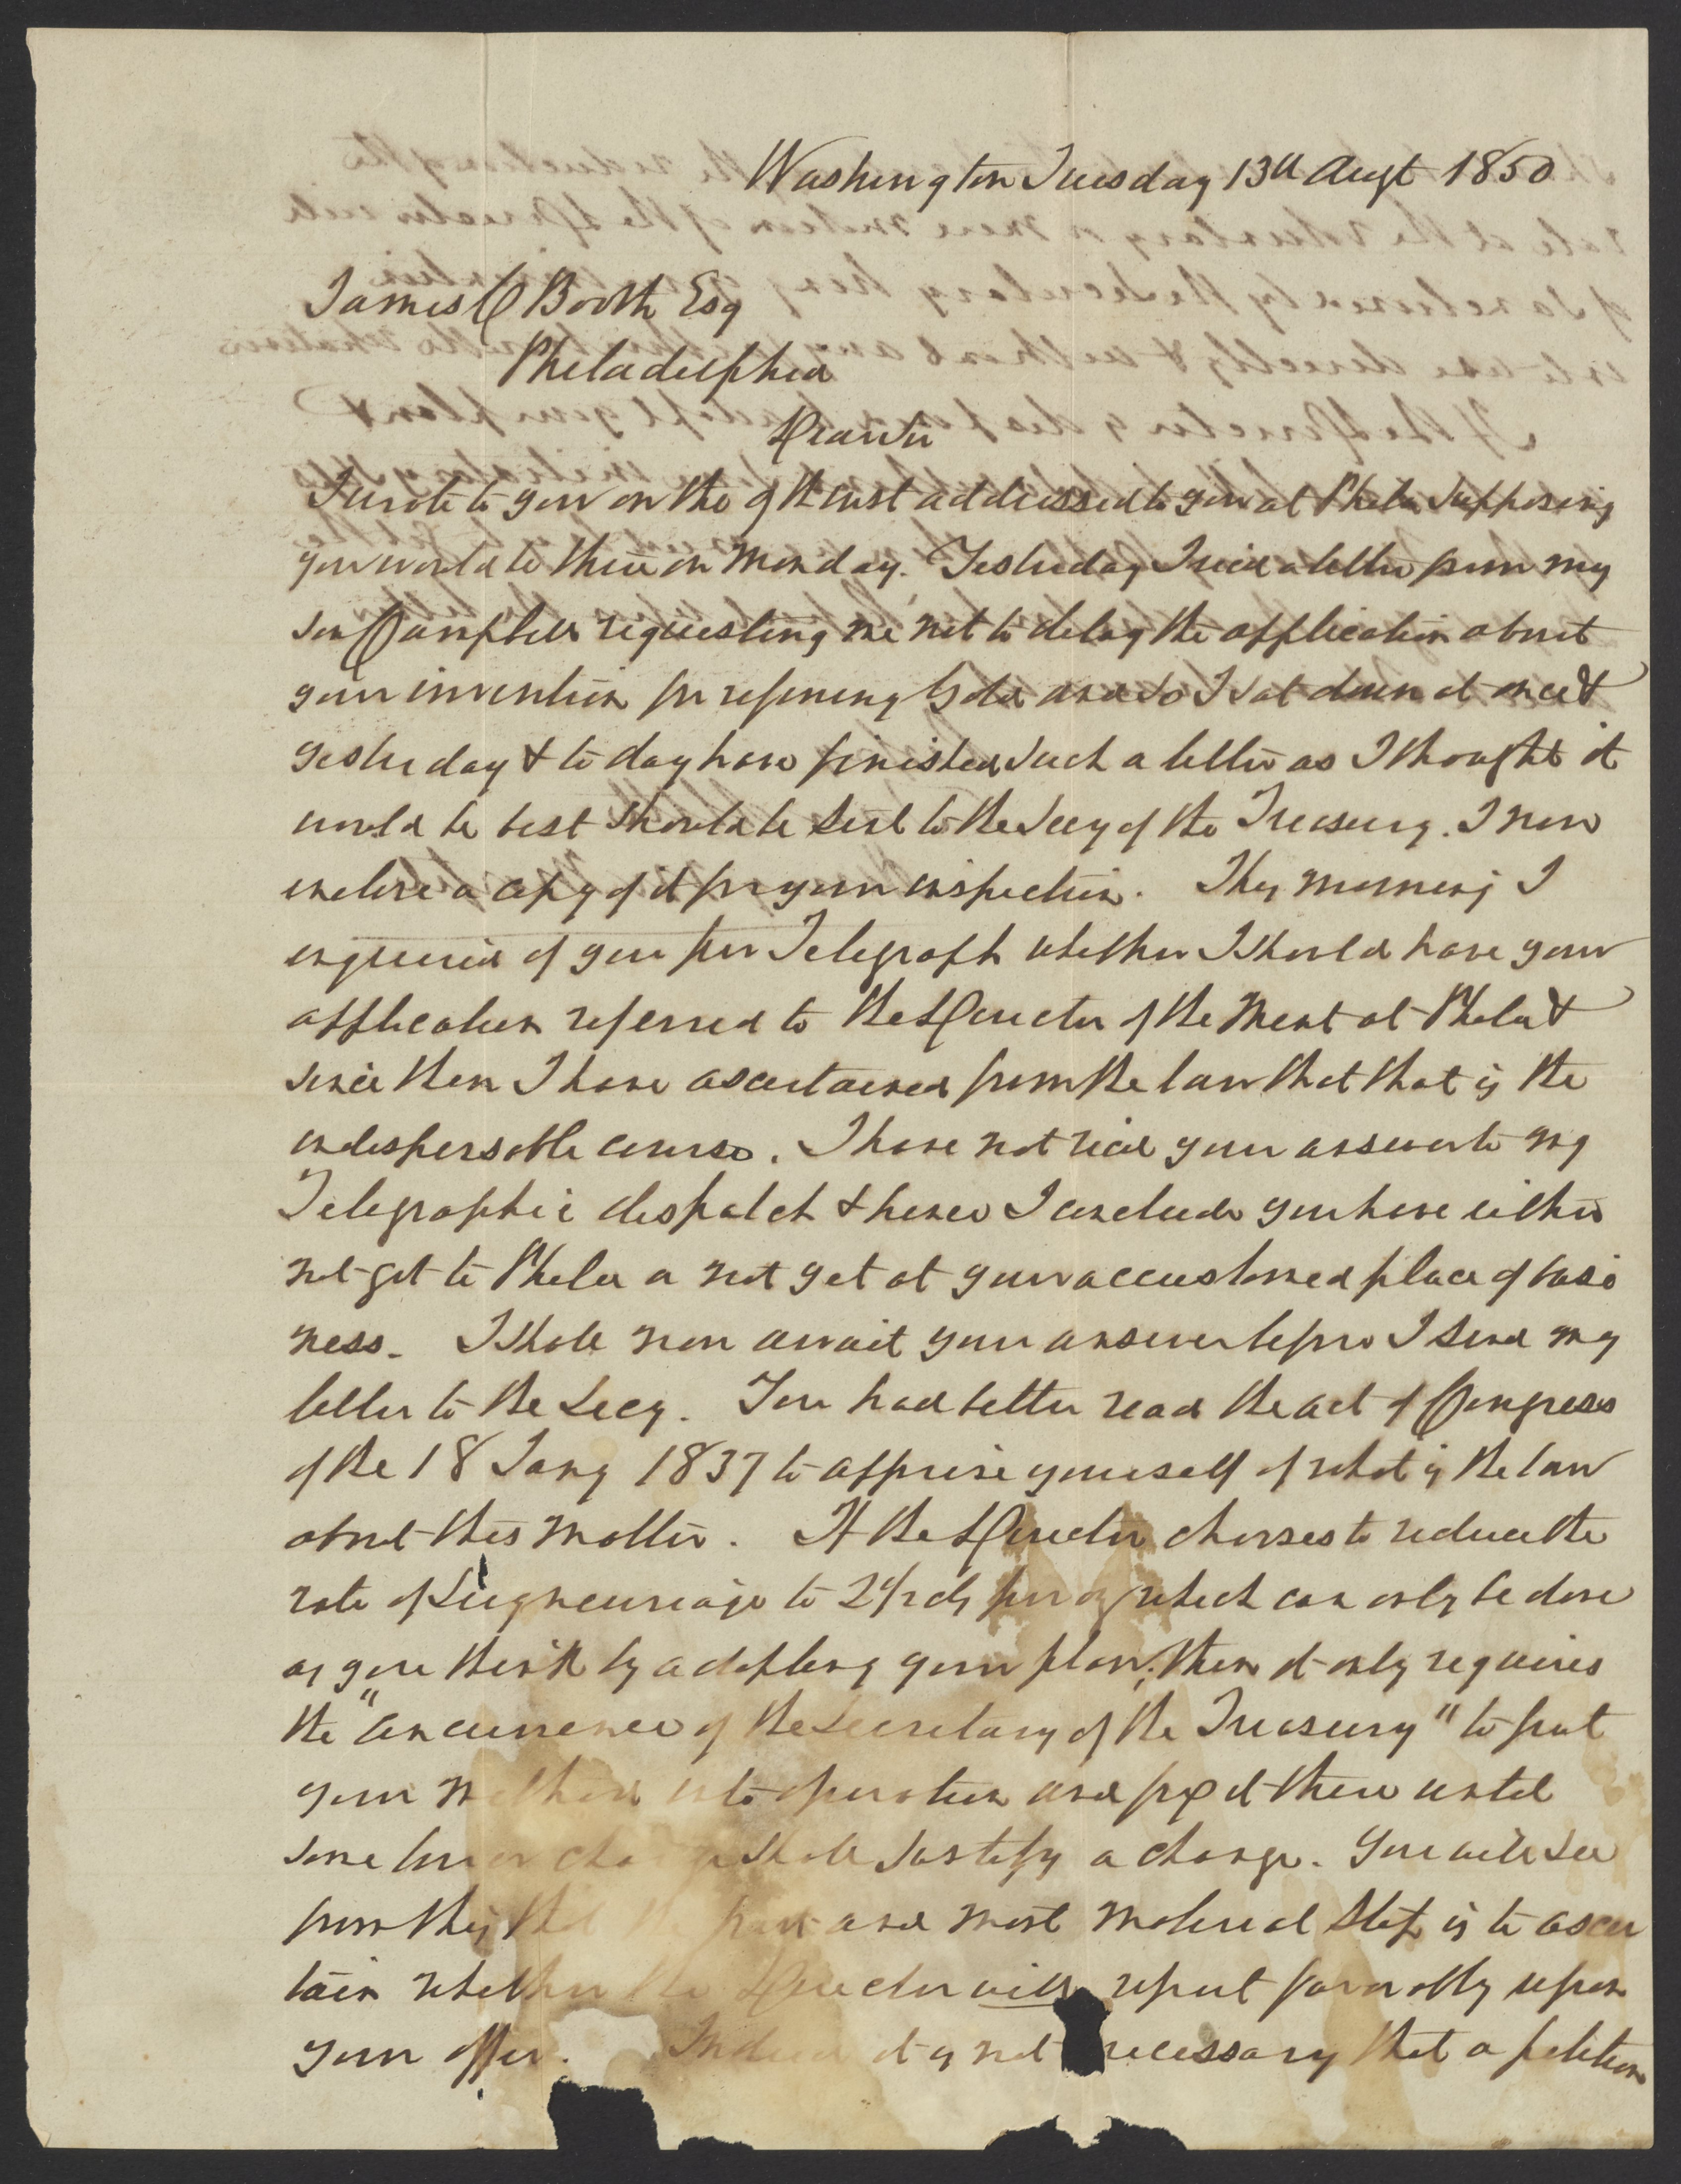 Washington Tuesday 13th Augt 1850
James C Booth Esq
Philadelphia
Dear Sir
I wrote to you on the 9th inst addressed to you at Phila supposing
you would be there on Monday. Yesterday I recd a letter from my
son Campbell requesting me not to delay the application about
your invention for refining Gold and so I sat down at once &
yesterday & to day have finished such a letter as I thought it
would be best should be sent to the Secy of the Treasury. I now
enclose a copy of it for your inspection. This morning I
enquired of you per Telegraph whether I should have your
application referred to the Director of the Mint at Phila &
since then I have ascertained from the law that that is the
indispensable course. I have not recd your answer to my
Telegraphic dispatch & hence I conclude you have either
not got to Phila or not yet at your accustomed place of busi
ness. I shall now await your answer before I send my
letter to the Secy. You had better read the act of Congress
of the 18 Jany 1837 to apprise yourself of what is the law
about this matter. If the Director chooses to reduce the
rate of Seigneuriage to 2 1/2 cts per oz which can only be done
as you think by adopting your plan, then it only requires
the "concurrence of the Secretary of the Treasury" to put
your method into operation and fix it there until
some shall justify a change. You will see
from this that the first and most material step is to ascer
tain whether the Director will report favorably upon
your offer. Indeed it is not necessary that a petition